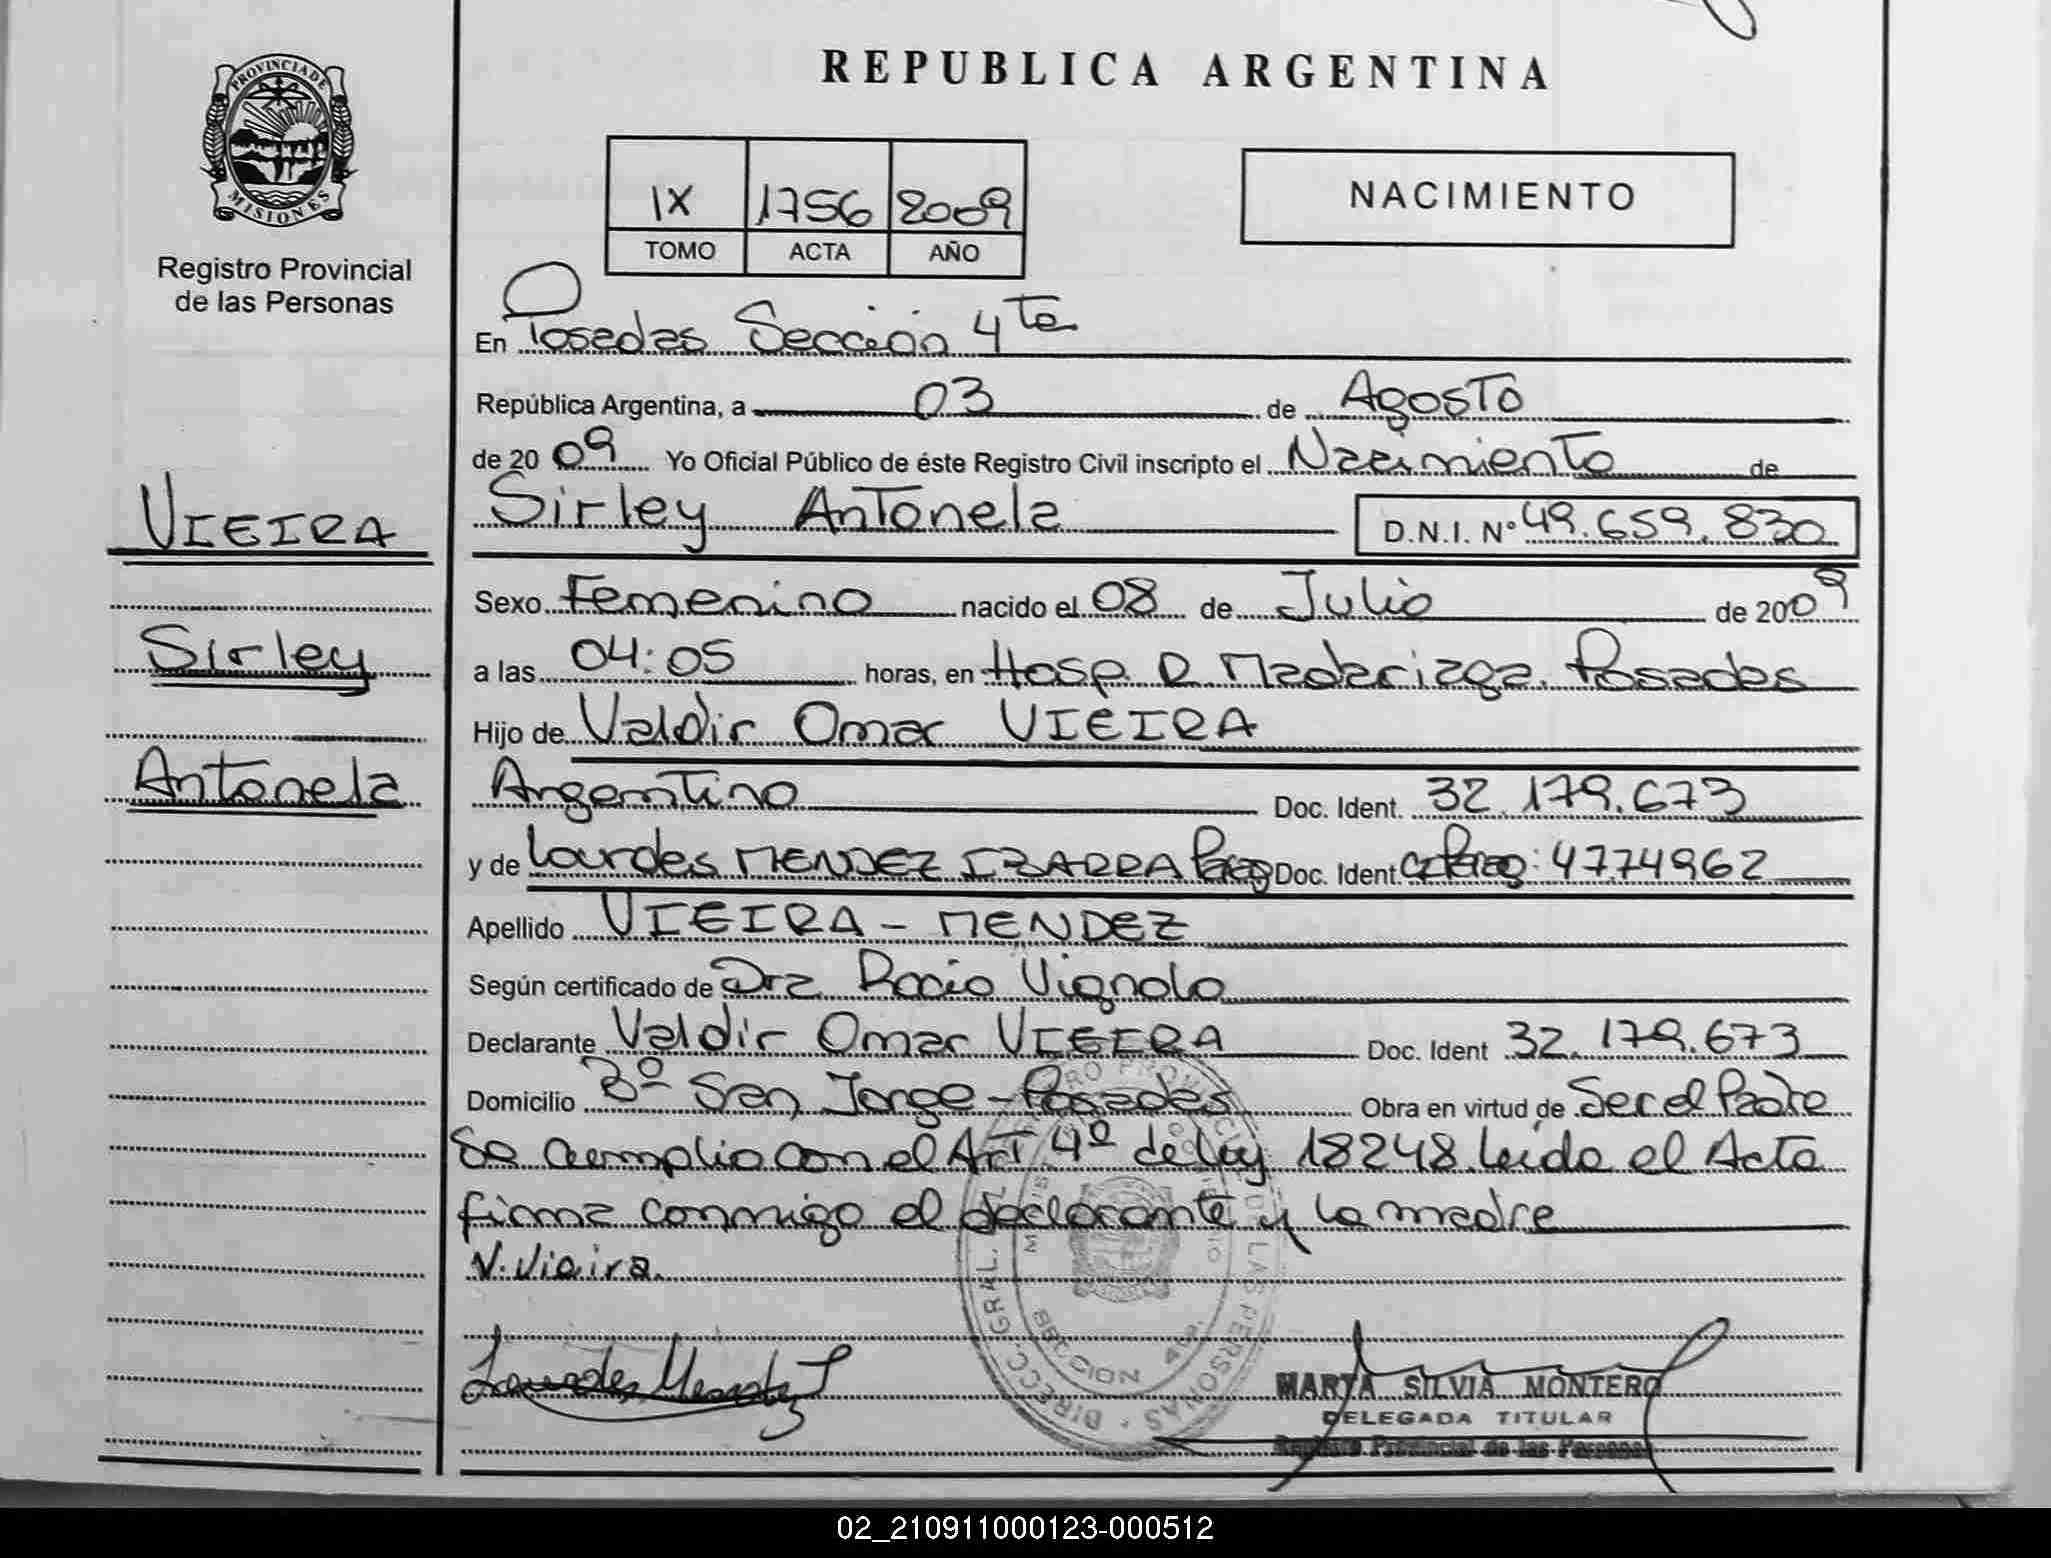 REPUBLICA ARGENTINA
PROVINCIA DE
MISIONES
Registro Provincial
de las Personas
IX 1756 2009
TOMO ACTA AÑO
NACIMIENTO
En Posadas Sección 4ta
República Argentina, a 03 de Agosto
de 2009 Yo Oficial Público de éste Registro Civil inscripto el Nacimiento de
VIEIRA
Sirley Antonela D.N.I. Nº 49.659.830
Sexo Femenino nacido el 08 de Julio de 2009
Sirley
a las 04:05 horas, en Hosp. R Madariaga. Posadas
Hijo de Valdir Omar VIEIRA
Antonela
Argentino Doc. Ident. 32.179.673
y de Lourdes MENDEZ IBARRA Doc. Ident. 4774962
Apellido VIEIRA - MENDEZ
Según certificado de Dra Rocio Vignolo
Declarante Valdir Omar VIEIRA Doc. Ident 32.179.673
Domicilio Bº San Jorge - Posadas Obra en virtud de Ser el Padre
Se cumplio con el Art 4º de ley 18248. Leida el Acta
firma conmigo el declarante y la madre
V. Vieira
Lourdes Mendez I
MARTA SILVIA MONTERO
DELEGADA TITULAR
Registro Provincial de las Personas
02_210911000123-000512